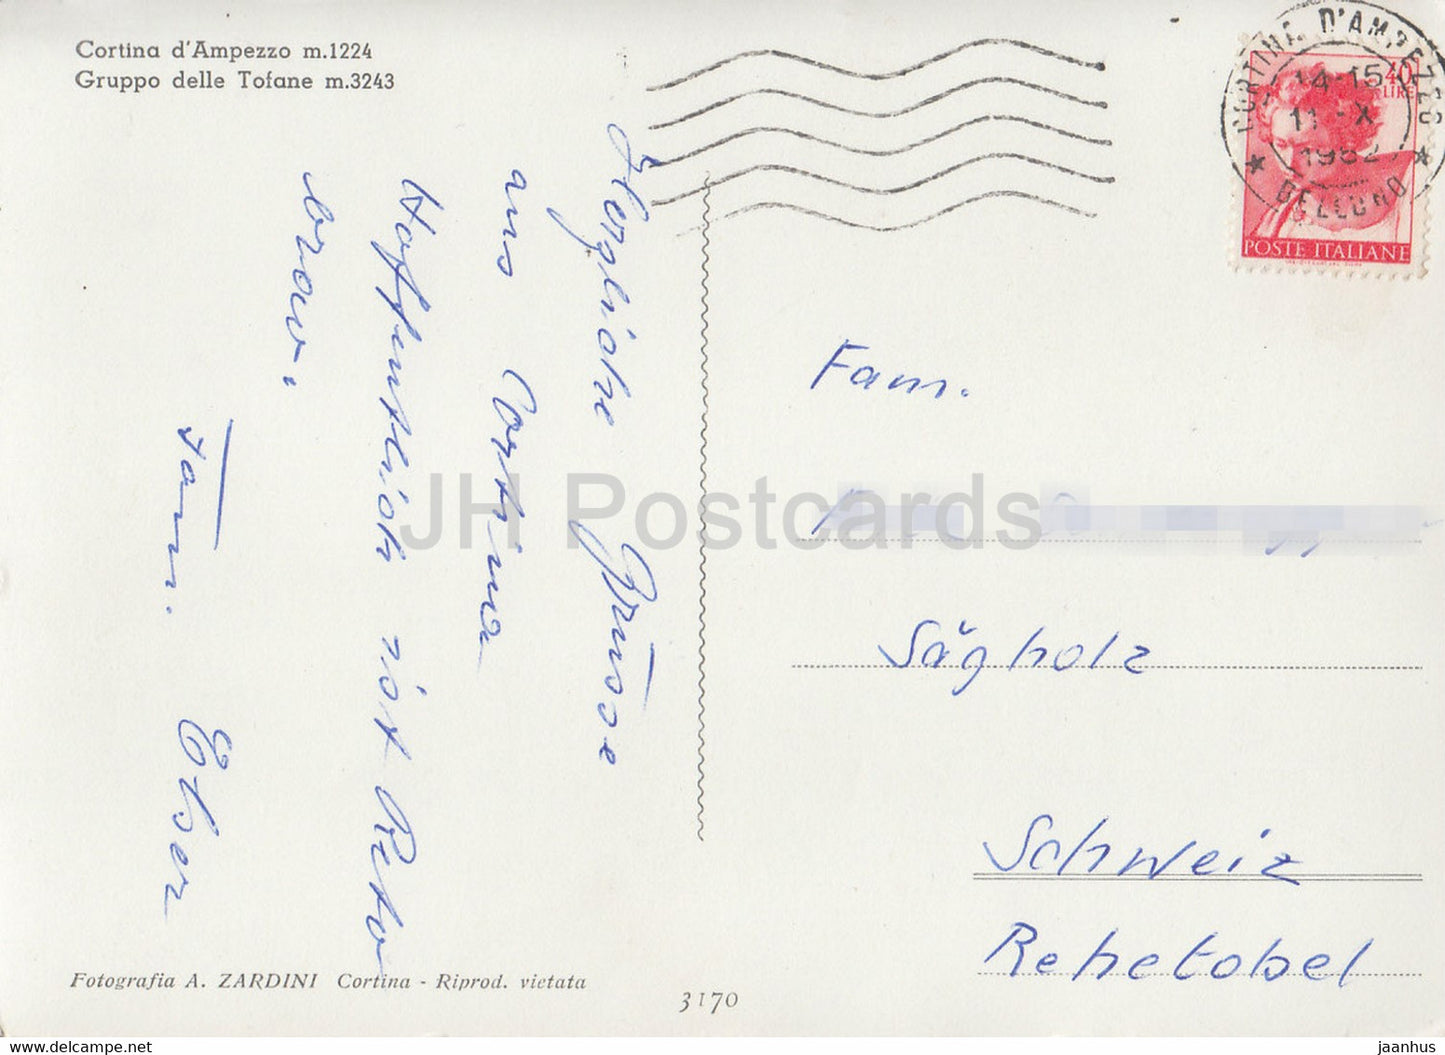 Cortina d'Ampezzo m.1224
Gruppo delle Tofane m.3243
CORTINA D'AMPEZZO
14-15
11-X
1962
BELLUNO
40
LIRE
POSTE ITALIANE
Herzliche Grüsse
aus Cortina
Hoffentlich ist Reto
brav.
Fam. Elser
Fam.
Sägholz
Schweiz
Rehetobel
JH Postcards
Fotografia A. ZARDINI Cortina - Riprod. vietata
3170
www.delcampe.net
jaanhus